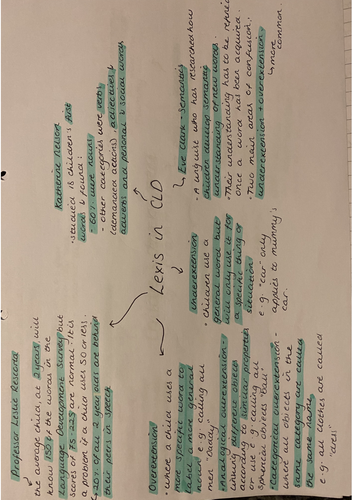 Lexis in CLD
Katherine Nelson
· studied 18 children's first
words & found:
- 60% were nouns
- other categories were verbs
(demanded actions), adjectives &
adverbs and personal & social words
↳ Eve Clark - semantics
· A linguist who has researched how
children develop semantic
understanding of new words.
· Their understanding has to be
once a word has been acquired.
· Two main areas of confusion:
underextension + overextension.
↳ more
common.
Underextension
- children use a
general word but
will only use it for
a specific thing or
situation
e.g. "car" only
applies to mummy's
car.
Overextension
- where a child uses a
more specific word to
label a more general
item. e.g. calling all
men "Daddy"
Analogical overextension -
linking different objects
according to similar properties
or use e.g. calling all
spherical objects "ball"
Categorical overextension -
where all objects in the
same category are called
the same name.
e.g. all clothes are called
"dress"
Professor Leslie Rescorla
the average child, at 2 years, will
know 150 of the words in the
Language Development Survey but
scores of 75-225 are normal. It is
a problem if a child uses 50 or less.
overall 2 year olds are behind
their peers in speech